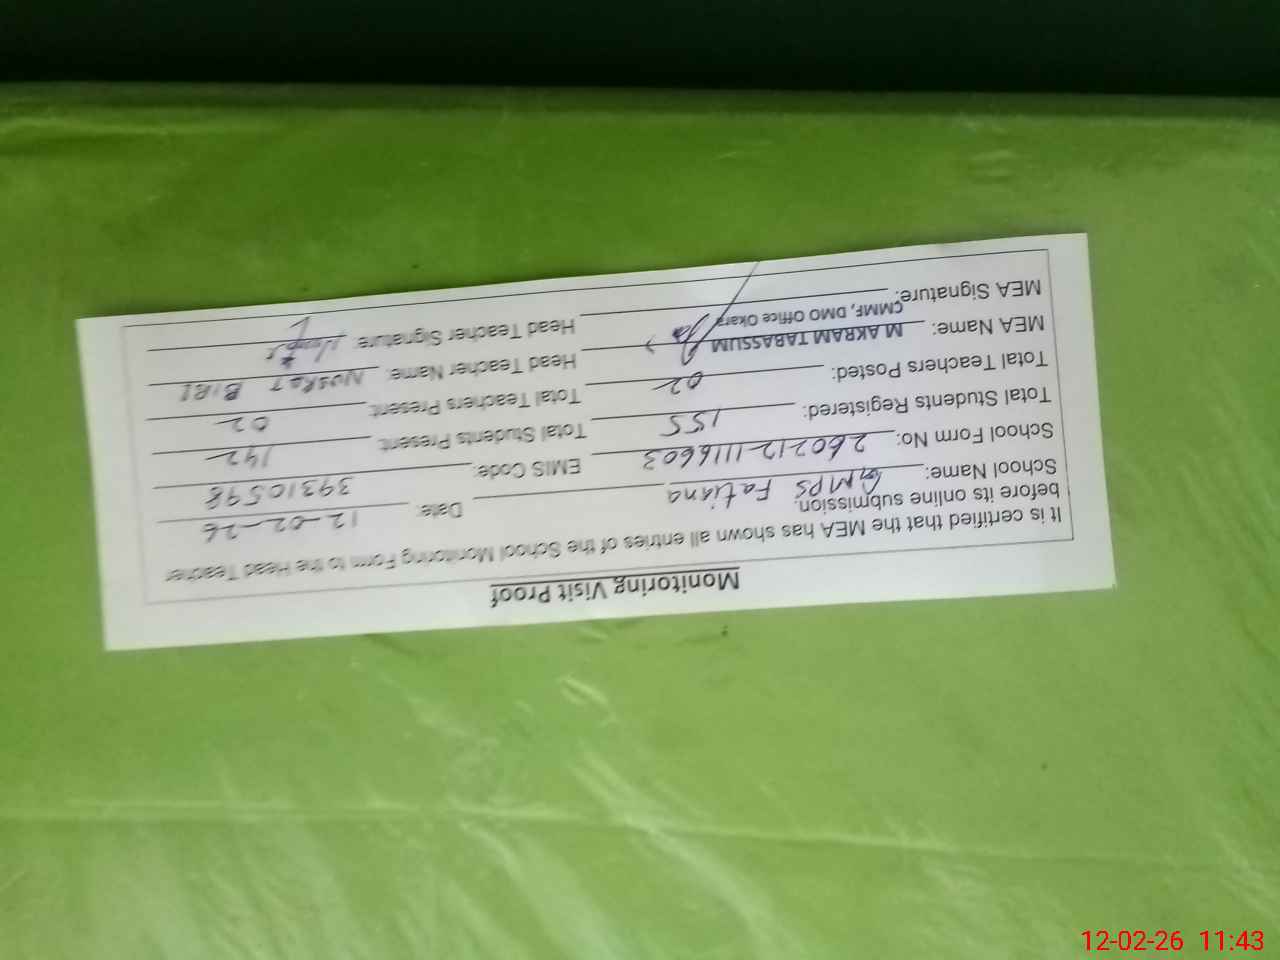 Monitoring Visit Proof
It is certified that the MEA has shown all entries of the School Monitoring Form to the Head Teacher
before its online submission.
School Name: GMPS Fatiana Date: 12-02-26
School Form No: 260212-1116603 EMIS Code: 39310598
Total Students Registered: 155 Total Students Present: 142
Total Teachers Posted: 02 Total Teachers Present: 02
MEA Name: M AKRAM TABASSUM Head Teacher Name: NUSRAT BIBI
CMMF, DMO Office Okara
MEA Signature: Head Teacher Signature:
12-02-26 11:43